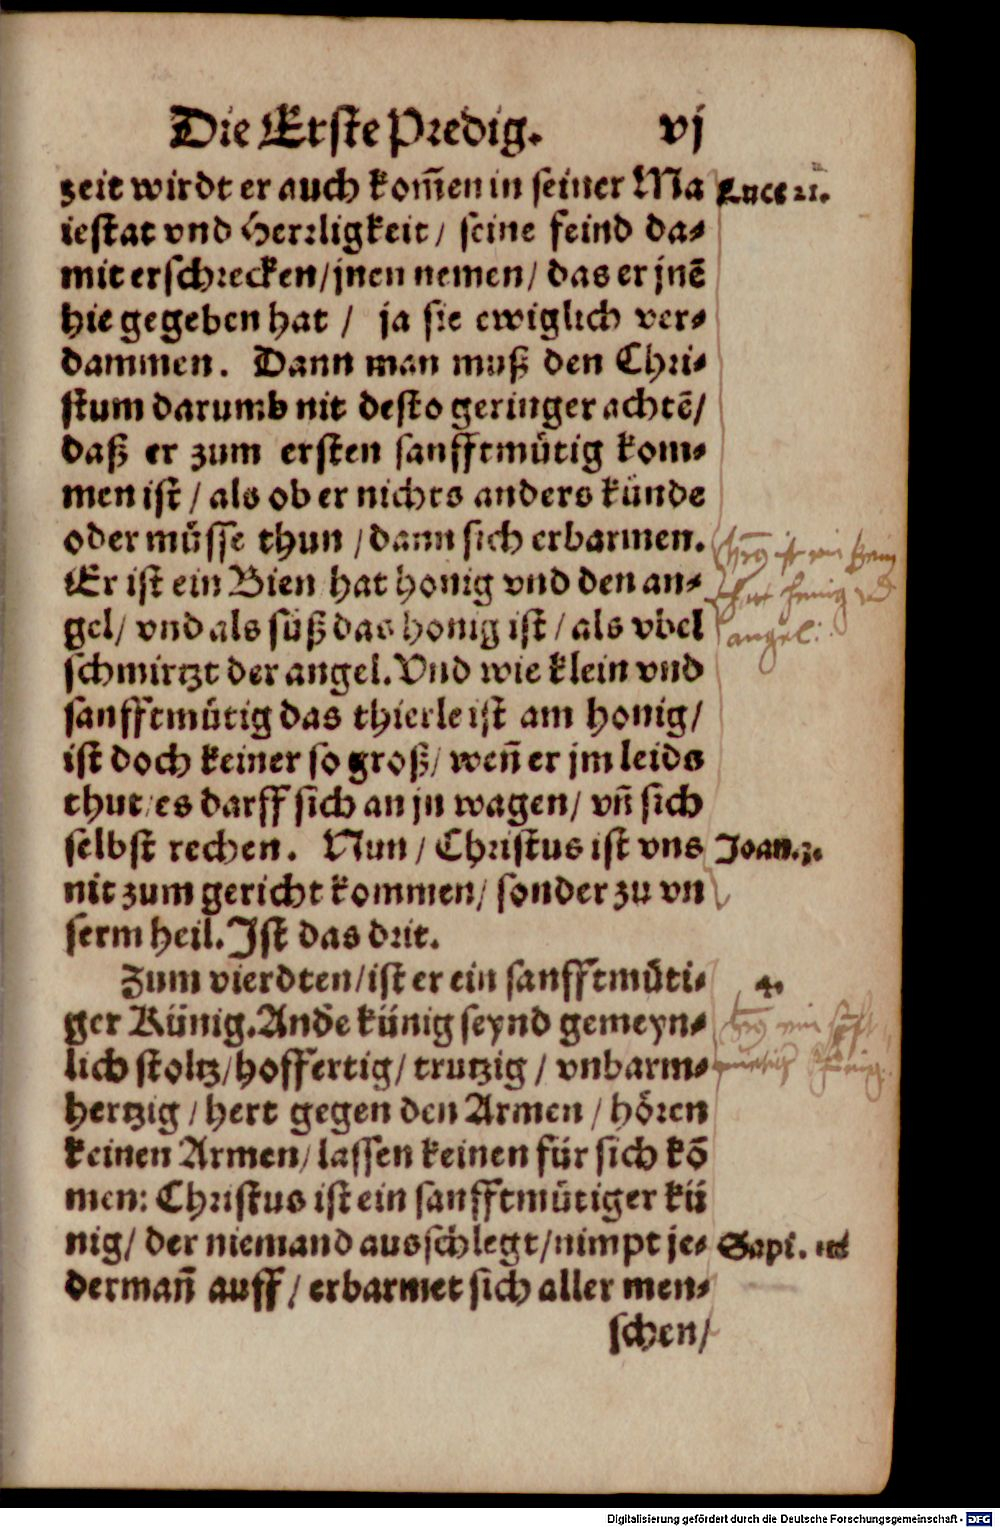 Die Erste Predig. vj
zeit wirdt er auch kom̃en in seiner Ma
iestat vnd Herrligkeit / seine feind da⸗
mit erschrecken / jnen nemen / das er jnẽ
hie gegeben hat / ja sie ewiglich ver⸗
dammen. Dann man muß den Chri⸗
stum darumb nit desto geringer achtẽ /
daß er zum ersten sanfftmütig kom⸗
men ist / als ob er nichts anders künde
oder müsse thun / dann sich erbarmen.
Er ist ein Bien hat honig vnd den an⸗
gel / vnd als süß das honig ist / als vbel
schmirtzt der angel. Vnd wie klein vnd
sanfftmütig das thierle ist am honig /
ist doch keiner so groß / weñ er jm leids
thut / es darff sich an jn wagen / vñ sich
selbst rechen. Nun / Christus ist vns
nit zum gericht kommen / sonder zu vn
serm heil. Ist das drit.
Zum vierdten / ist er ein sanfftmüti⸗
ger Künig. Andẽ künig seynd gemeyn⸗
lich stoltz / hoffertig / trutzig / vnbarm⸗
hertzig / hert gegen den Armen / hören
keinen Armen / lassen keinen für sich kõ
men: Christus ist ein sanfftmütiger kü
nig / der niemand ausschlegt / nimpt je⸗
dermañ auff / erbarmet sich aller men⸗
schen /
Luce 21.
angel.
Joan. 3.
4.
Sapi.
Digitalisierung gefördert durch die Deutsche Forschungsgemeinschaft - DFG